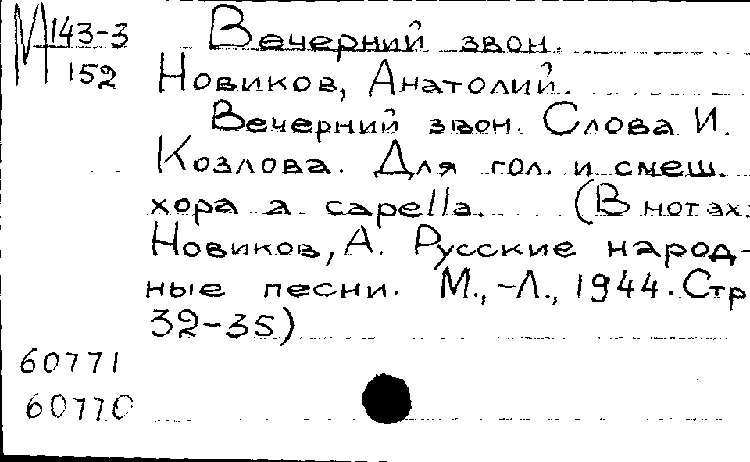 М 143-3 Вечерний звон.
152 Новиков, Анатолий.
Вечерний звон. Слова И.
Козлова. Для гол. и смеш.
хора a capella. (В нотах:
Новиков, А. Русские народ-
ные песни. М.,-Л., 1944. Стр
32-35)
60771
60770